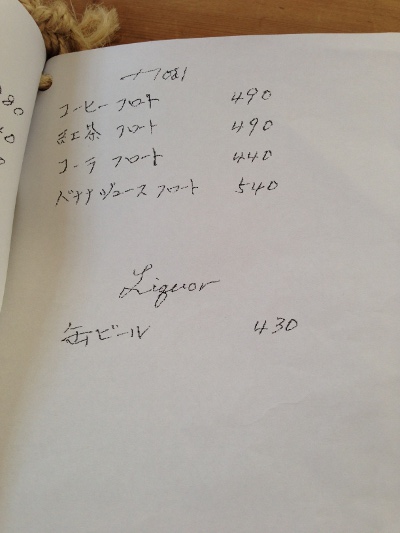 Float
コーヒーフロート 490
紅茶 フロート 490
コーラ フロート 440
バナナジュースフロート 540
Liquor
缶ビール 430